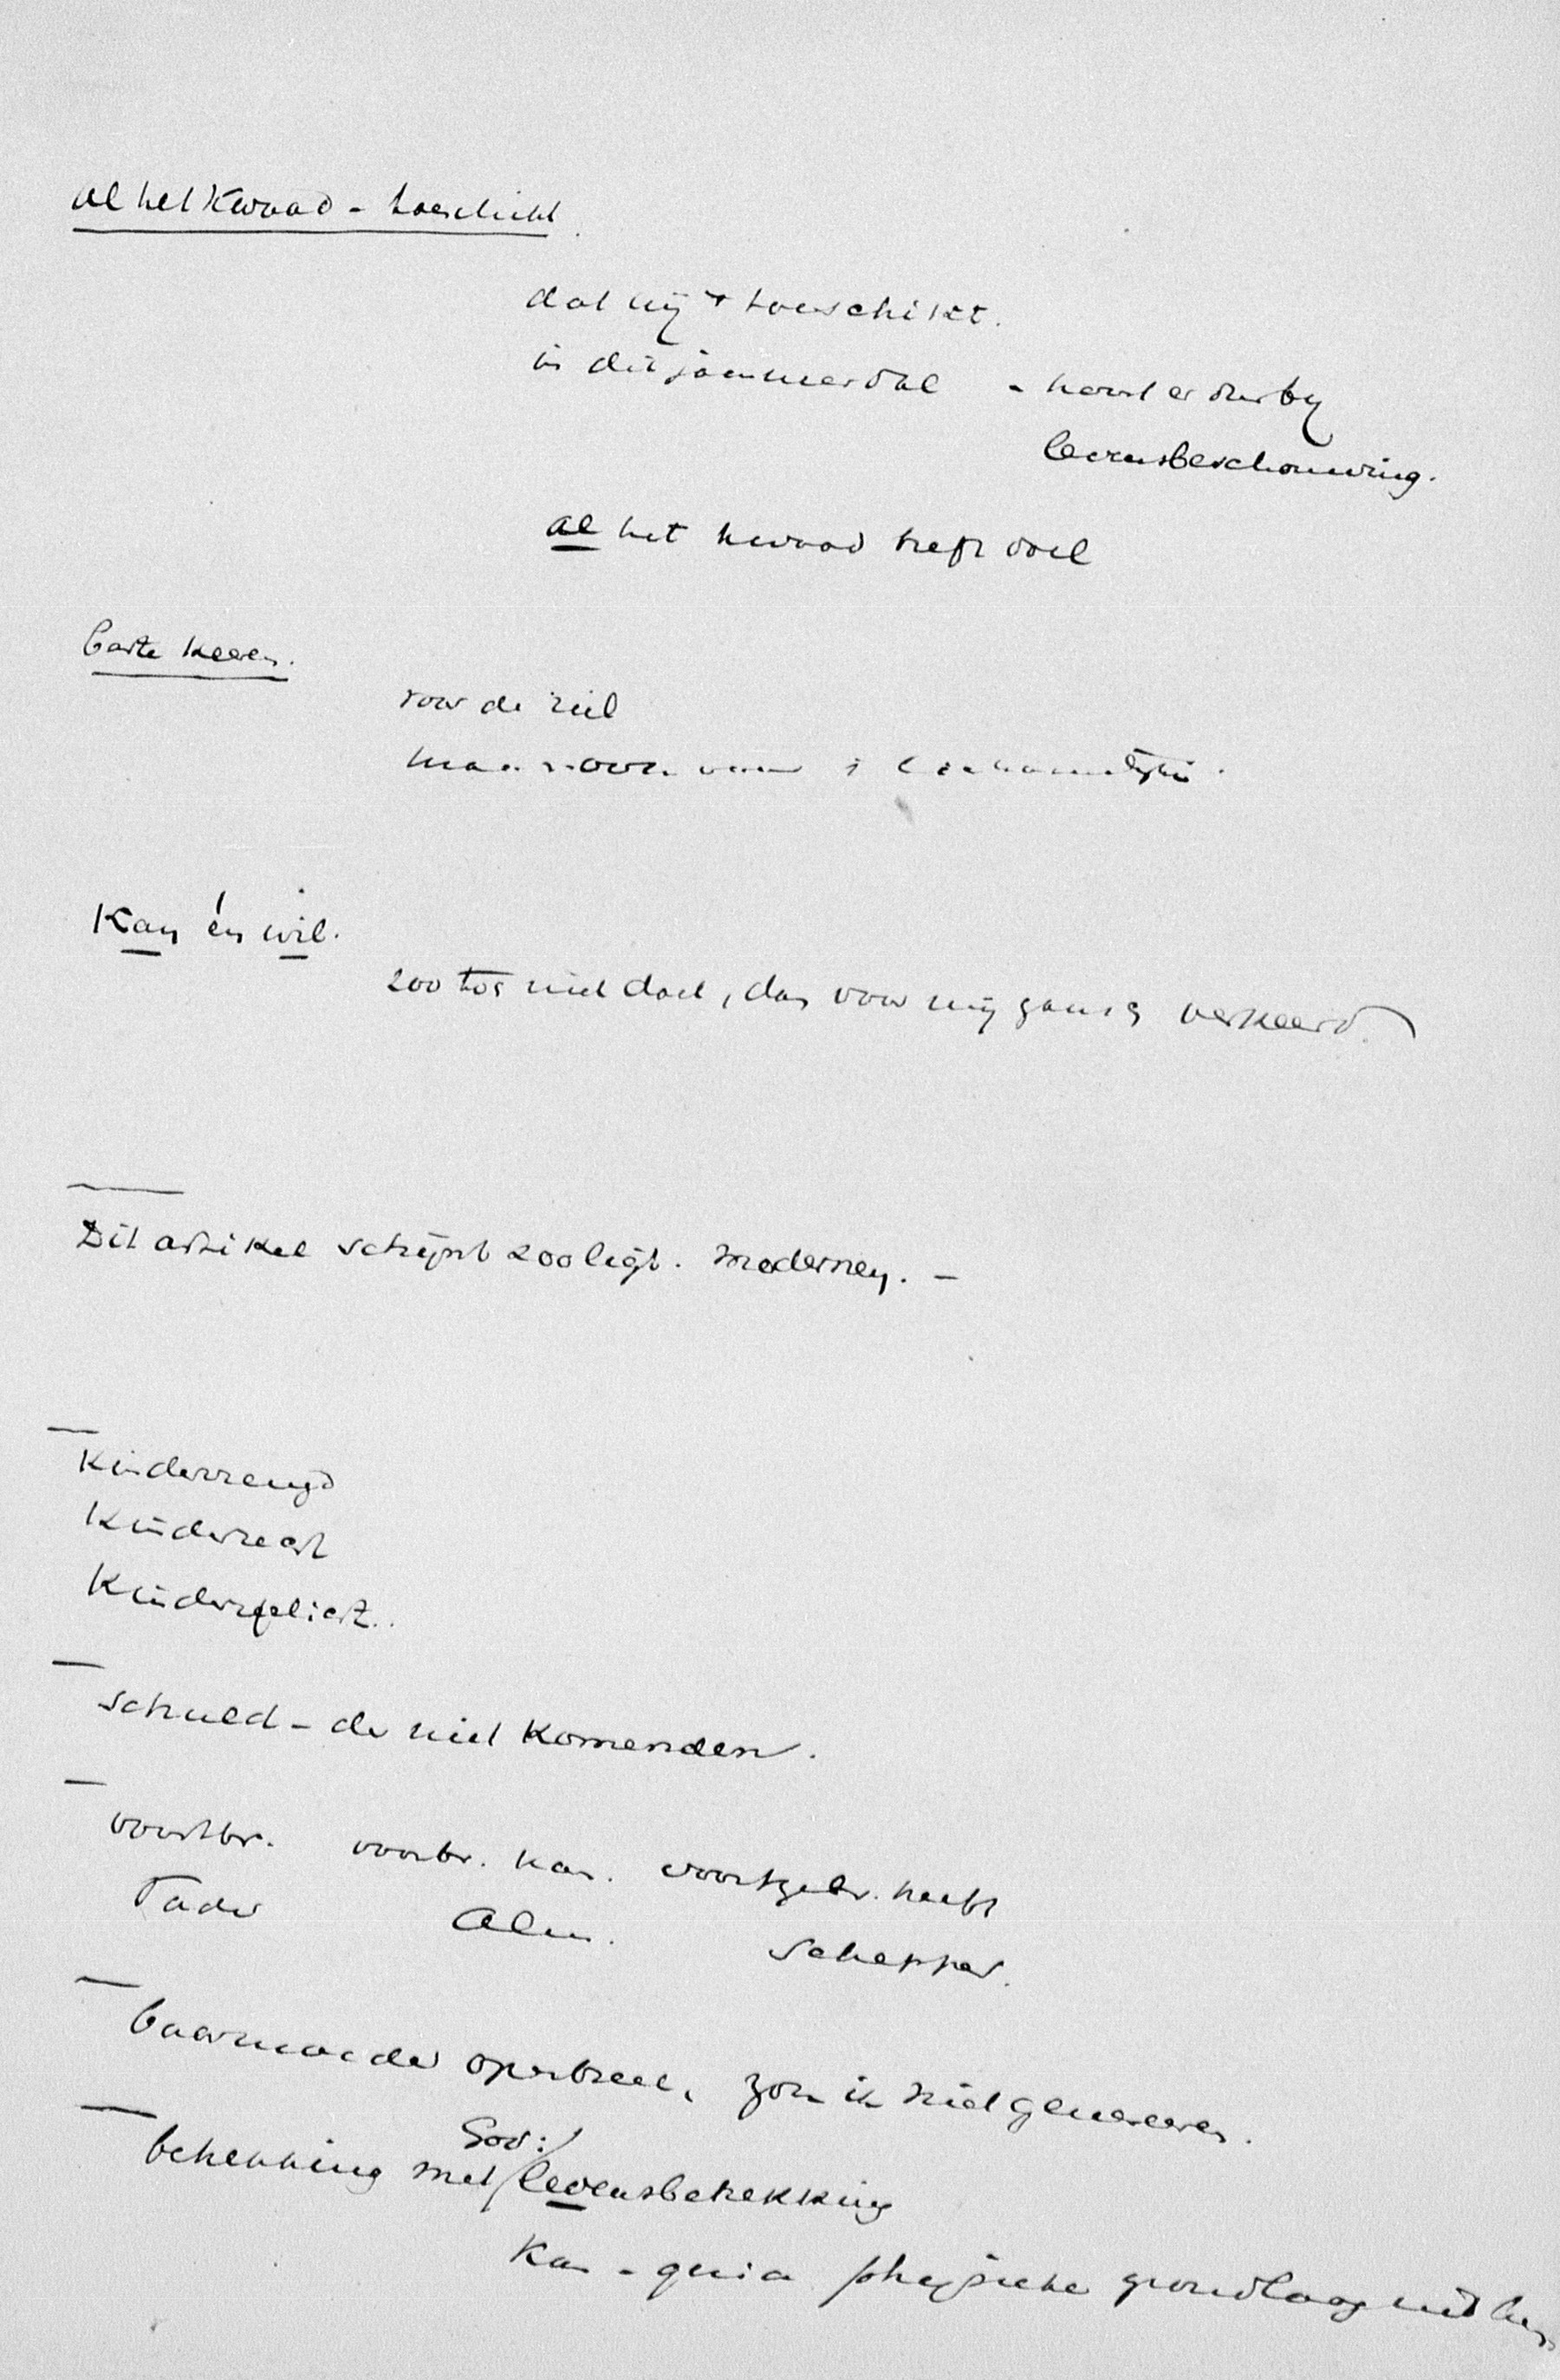 al het Kwaad - toeschikt
dat hij + toeschikt.
in dit jammerdal - hoort er dus bij
levensbeschouwing.
al het kwaad heeft doel
beste keeren.
voor de ziel
maar ook voor 't lichamelijke.
Kan én wil.
zoo God niet doet, dan voor mij gansch verkeerd.
Dit artikel schijnt zoo ligt. Modernen. -
Kindervreugd
Kinderrecht
Kinderplicht.
schuld - de niet Komenden.
voortbr. voortbr. kan. voortgebr. heeft
Vader Alm. Schepper.
baarmoeder zou ik niet genereeren.
God:
betrekking met levensbetrekking
Kan - quia physieke grondlaag